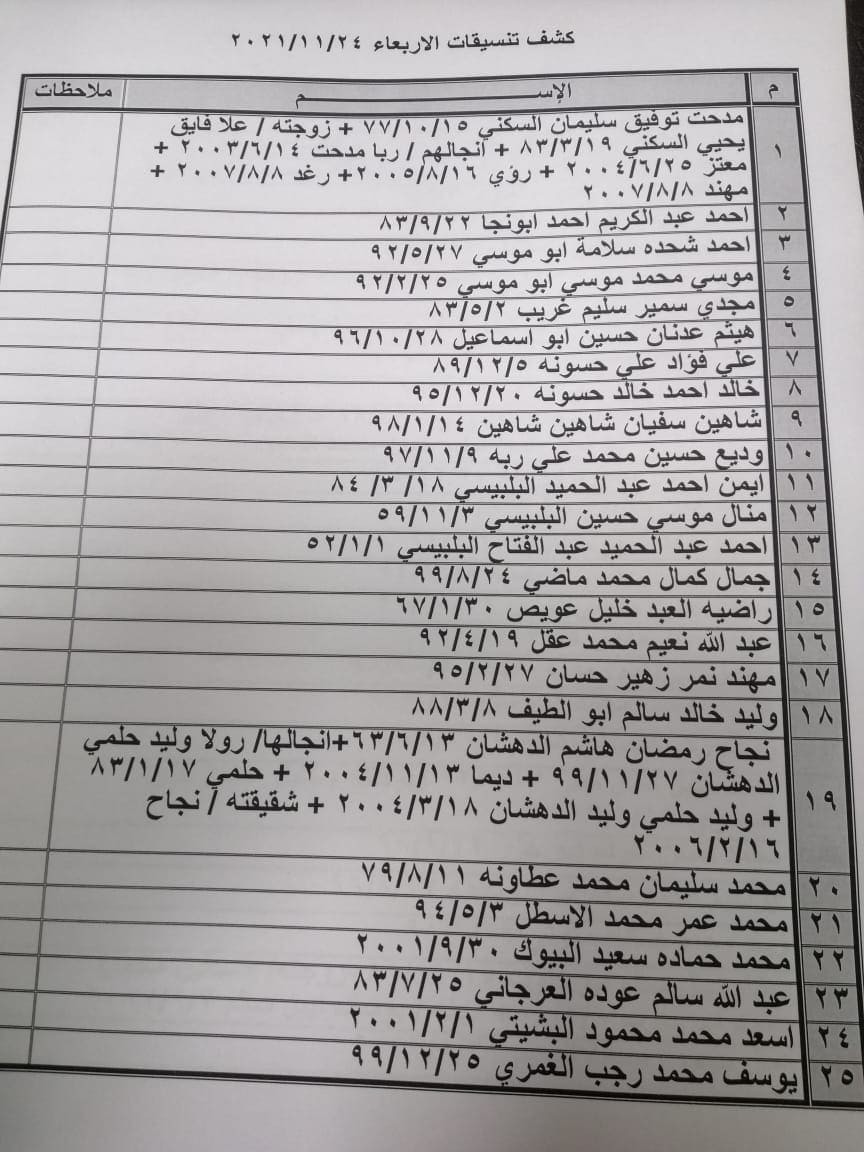 كشف تنسيقات الاربعاء ٢٠٢١/١١/٢٤
م الإســـــــــــــم ملاحظات
١ مدحت توفيق سليمان السكني ٧٧/١٠/١٥ + زوجته / علا فايق
يحيي السكني ٨٣/٣/١٩ + انجالهم / ربا مدحت ٢٠٠٣/٦/١٤ +
معتز ٢٠٠٤/٦/٢٥ + رؤي ٢٠٠٥/٨/١٦+ رغد ٢٠٠٧/٨/٨ +
مهند ٢٠٠٧/٨/٨
٢ احمد عبد الكريم احمد ابونجا ٨٣/٩/٢٢
٣ احمد شحده سلامة ابو موسي ٩٢/٥/٢٧
٤ موسي محمد موسي ابو موسي ٩٢/٢/٢٥
٥ مجدي سمير سليم غريب ٨٣/٥/٢
٦ هيثم عدنان حسين ابو اسماعيل ٩٦/١٠/٢٨
٧ علي فؤاد علي حسونه ٨٩/١٢/٥
٨ خالد احمد خالد حسونه ٩٥/١٢/٢٠
٩ شاهين سفيان شاهين شاهين ٩٨/١/١٤
١٠ وديع حسين محمد علي ربه ٩٧/١١/٩
١١ ايمن احمد عبد الحميد البلبيسي ١٨/ ٣/ ٨٤
١٢ منال موسي حسين البلبيسي ٥٩/١١/٣
١٣ احمد عبد الحميد عبد الفتاح البلبيسي ٥٢/١/١
١٤ جمال كمال محمد ماضي ٩٩/٨/٢٤
١٥ راضيه العبد خليل عويص ٦٧/١/٣٠
١٦ عبد الله نعيم محمد عقل ٩٢/٤/١٩
١٧ مهند نمر زهير حسان ٩٥/٢/٢٧
١٨ وليد خالد سالم ابو الطيف ٨٨/٣/٨
١٩ نجاح رمضان هاشم الدهشان ٦٣/٦/١٣+انجالها/ رولا وليد حلمي
الدهشان ٩٩/١١/٢٧ + ديما ٢٠٠٤/١١/١٣ + حلمي ٨٣/١/١٧
+ وليد حلمي وليد الدهشان ٢٠٠٤/٣/١٨ + شقيقته / نجاح
٢٠٠٦/٢/١٦
٢٠ محمد سليمان محمد عطاونه ٧٩/٨/١١
٢١ محمد عمر محمد الاسطل ٩٤/٥/٣
٢٢ محمد حماده سعيد البيوك ٢٠٠١/٩/٣٠
٢٣ عبد الله سالم عوده العرجاني ٨٣/٧/٢٥
٢٤ اسعد محمد محمود البشيتي ٢٠٠١/٢/١
٢٥ يوسف محمد رجب الغمري ٩٩/١٢/٢٥